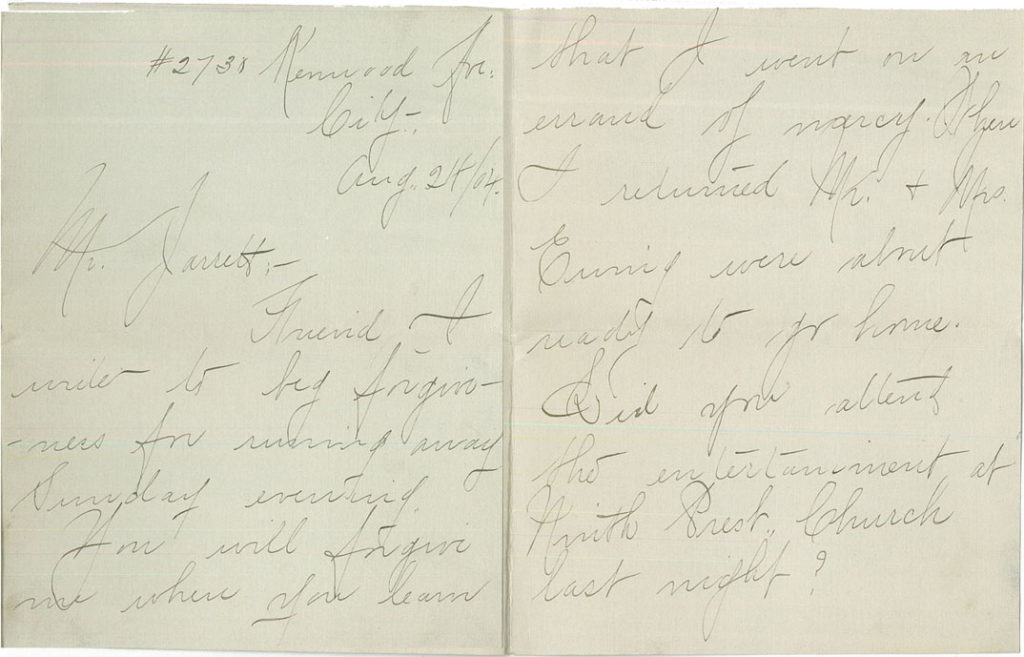 #2738 Kenwood Ave.
City,
Aug. 24/04.
Mr. Jarrett,-
Friend I
write to beg forgive-
-ness for running away
Sunday evening.
You will forgive
me when you learn
that I went on an
errand of mercy. When
I returned Mr. + Mrs.
Ewing were about
ready to go home.
Did you attend
the entertainment at
Ninth Prest., Church
last night?